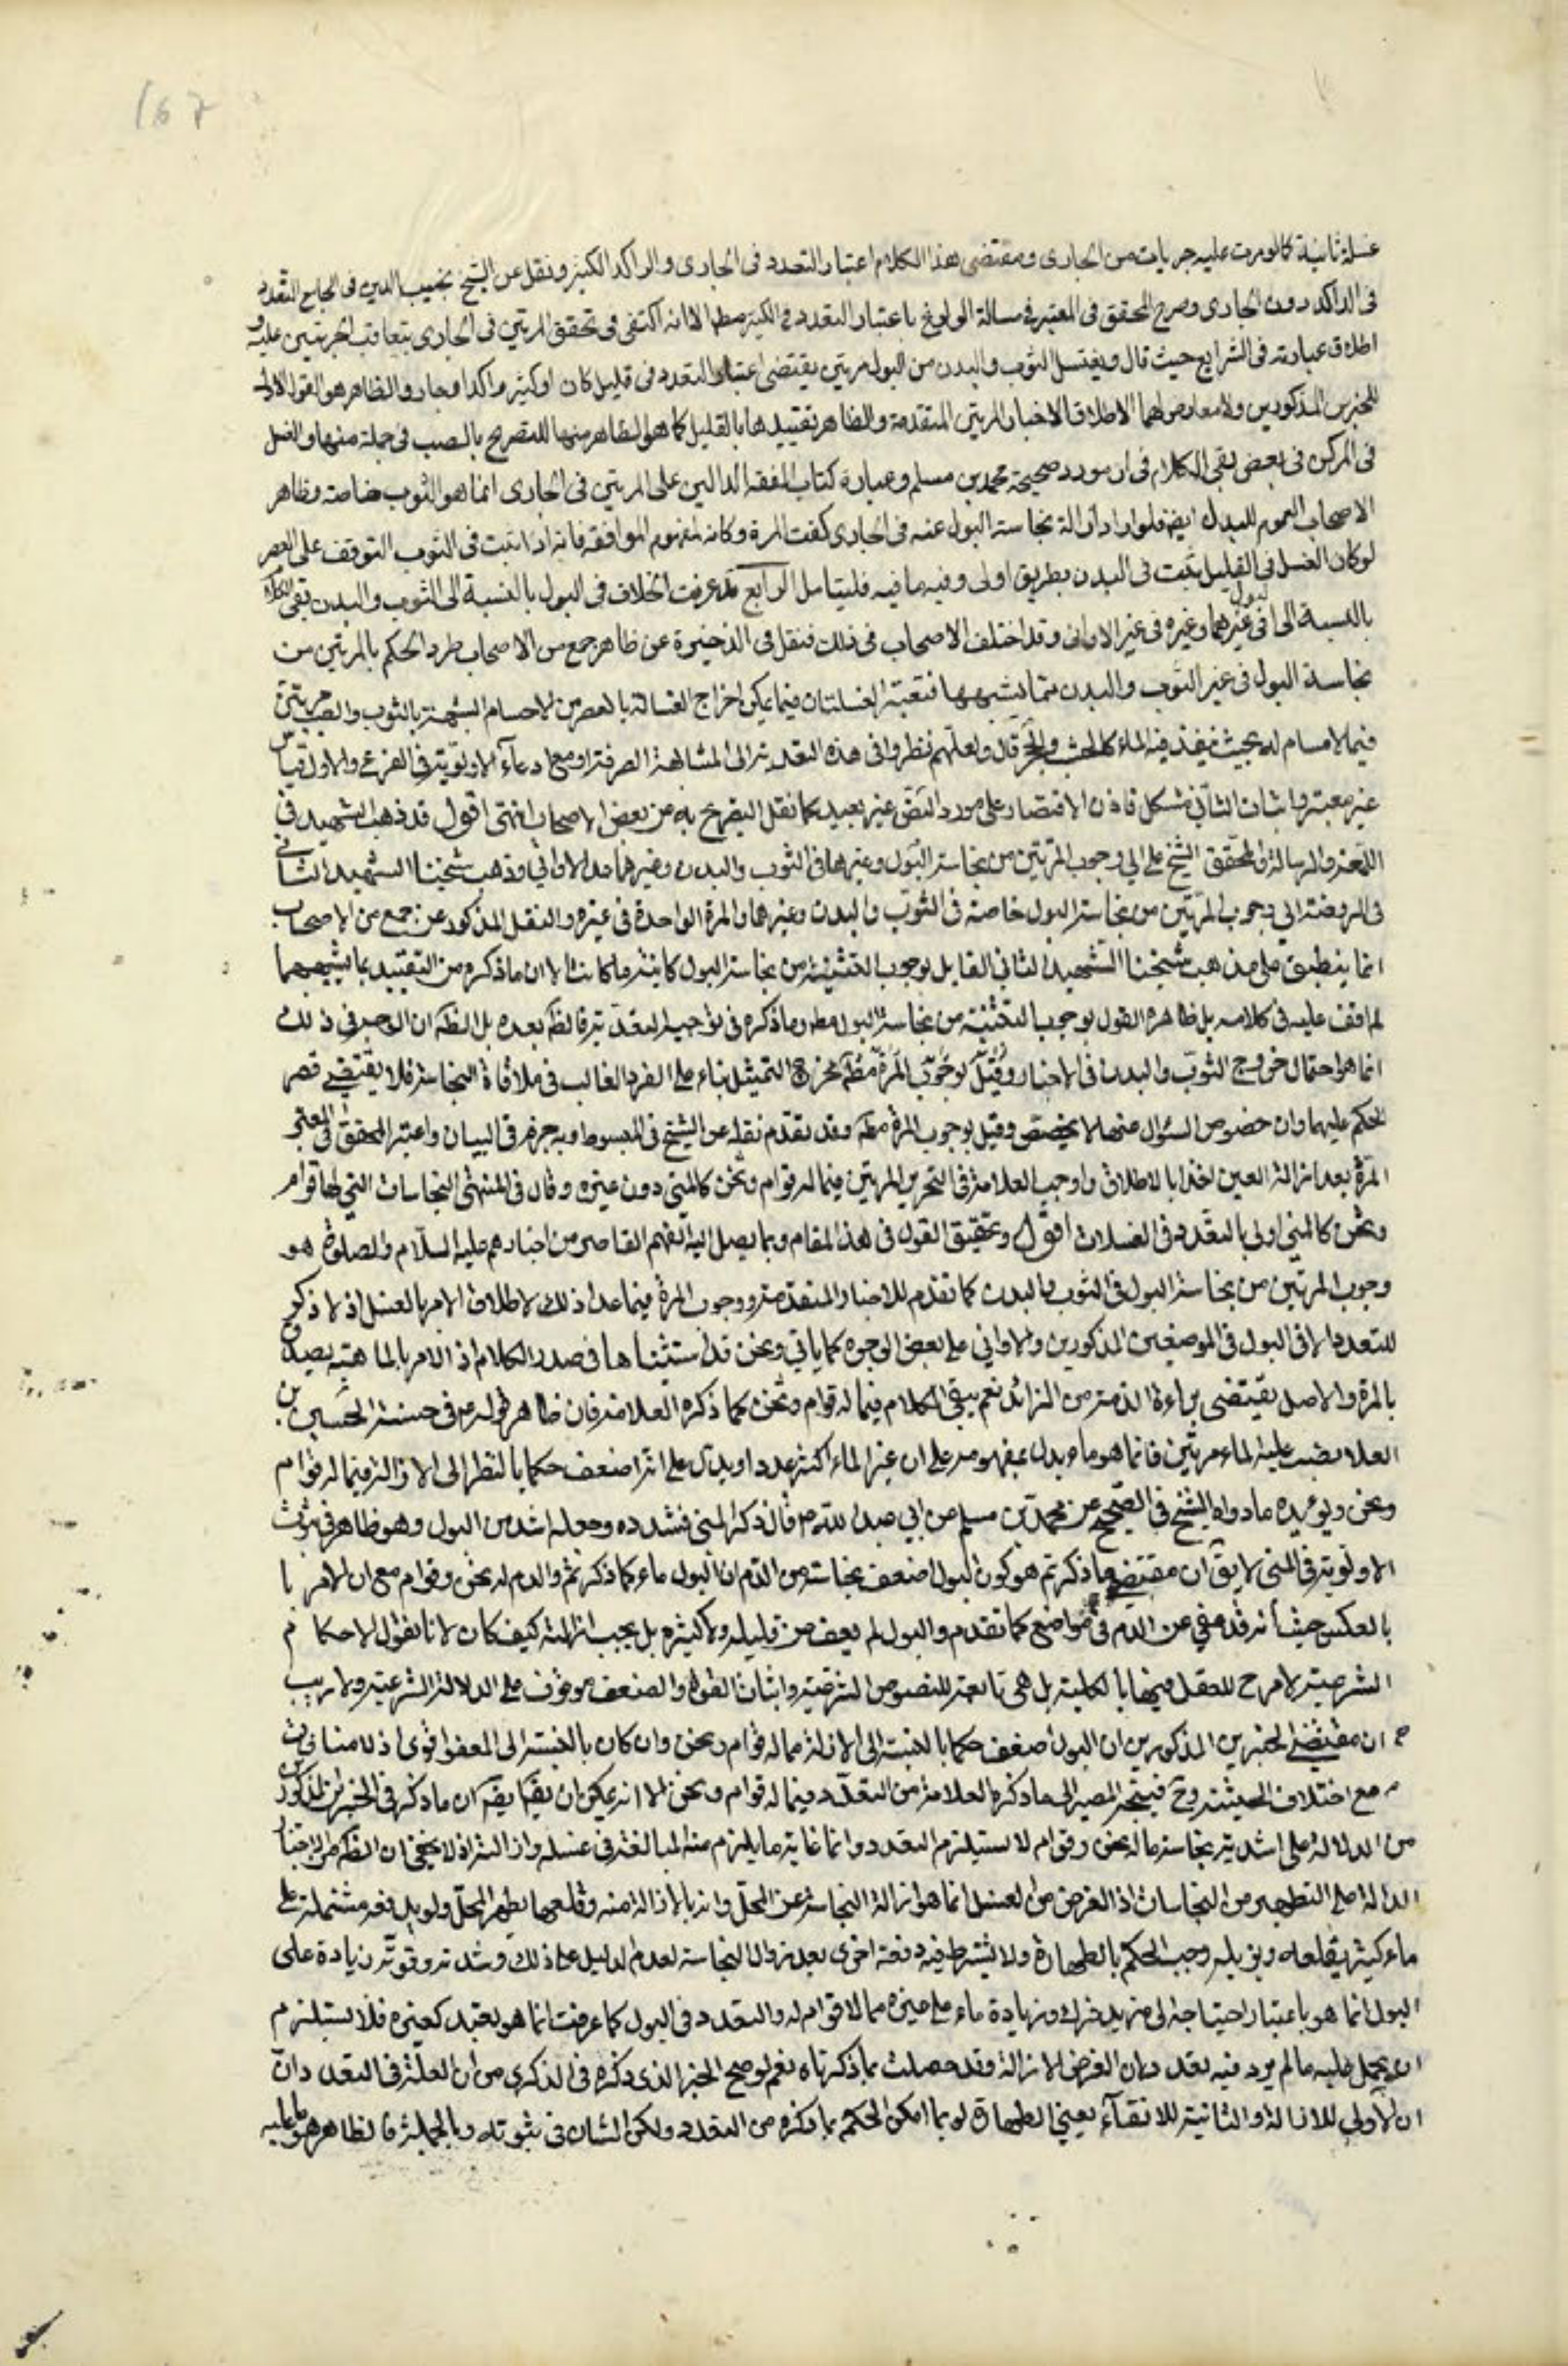 167
غسلة ثانية كما لو مرت عليه جريات من الجارى ومقتضى هذا الكلام اعتبار التعدد فى الجارى والراكد الكثير ونقل عن الشيخ نجيب الدين فى الجامع التعدد
فى الراكد دون الجارى وصرح المحقق فى المعتبر فى مسالة الولوغ باعتبار التعدد فى الكثير مطلقا الا انه اكتفى فى تحقق المرتين فى الجارى بتعاقب الجريتين عليه و
اطلاق عبارته فى الشرايع حيث قال ويغتسل الثوب والبدن من البول مرتين يقتضى اعتبار التعدد فى قليل كان او كثير راكدا وجار والظاهر هو القول الاول
للخبرين المذكورين ولا معارض لهما الا اطلاق الاخبار المرتين المتقدمة والظاهر تقييدها بالقليل كما هو الظاهر منها للتصريح بالصب فى جملة منها والغسل
فى المركن فى بعض بقى الكلام فى ان مورد صحيحة محمد بن مسلم وعبارة كتاب الفقه الدالين على المرتين فى الجارى انما هو الثوب خاصة وظاهر
الاصحاب العموم للبدن ايضا فلو اراد ازالة نجاسة البول عنه فى الجارى كفت المرة وكانه لمفهوم الموافقه فانه اذا ثبت فى الثوب التوقف على العصر
لو كان الغسل فى القليل يثبت فى البدن بطريق اولى وفيه ما فيه فليتامل الرابع قد عرفت الخلاف فى البول بالنسبة الى الثوب والبدن بقى الكلام
بالنسبة الى البول فى غيرهما وغيره فى غير الاوانى وقد اختلف الاصحاب فى ذلك فنقل فى الذخيرة عن ظاهر جمع من الاصحاب طرد الحكم بالمرتين من
نجاسة البول فى غير الثوب والبدن مما يشبهها فتعتبر الغسلتان فيما يمكن اخراج الغسالة بالعصر من الاجسام الشبيهة بالثوب والصب مرتين
فيما لا مسام له بحيث ينفذ فيه الماء كالخشب والحجر قال ولعلهم نظروا فى هذه التعدية الى المشابهة الصرفة او مع ادعاء الاولوية فى الفرع والاول قياس
غير معتبر واثبات الثانى مشكل فاذن الاقتصار على مورد النص غير بعيد كما نقل التصريح به من بعض الاصحاب انتهى اقول قد ذهب الشهيد فى
اللمعة والرسالة والمحقق الشيخ على الى وجوب المرتين من نجاسة البول وغيرها فى الثوب والبدن وغيرهما عدا الاوانى وذهب شيخنا الشهيد الثانى
فى الروضة الى وجوب المرتين من نجاسة البول خاصة فى الثوب والبدن وغيرهما والمرة الواحدة فى غيره والنقل المذكور عن جمع من الاصحاب
انما ينطبق على مذهب شيخنا الشهيد الثانى القايل بوجوب التثنية من نجاسة البول كاينة ما كانت الا ان ما ذكره من التقييد بما يشبههما
لم اقف عليه فى كلامه بل ظاهره القول بوجوب التثنية من نجاسة البول مط وما ذكره فى توجيه التعدية فالظ بعده بل الظ ان الوجه فى ذلك
انما هو احتمال خروج الثوب والبدن فى الاخبار مخرج التمثيل بناء على الفرد الغالب فى ملاقاة النجاسة فلا يقتضى قصر
الحكم عليهما وان خصوص السؤال عنهما لا يخصص وقيل بوجوب المرة مط وقد تقدم نقله عن الشيخ فى المبسوط وبه جزم فى البيان واعتبر المحقق فى المعتبر
المرة بعد ازالة العين اخذا بالاطلاق واوجب العلامة فى التحرير المرتين فيما له قوام وثخن كالمنى دون غيره وقال فى المنتهى النجاسات التى لها قوام
وثخن كالمنى اولى بالتعدد فى الغسلات اقول وتحقيق القول فى هذا المقام وبما يصل اليه الفهم القاصر من اخبارهم عليه السلام والصلوة هو
وجوب المرتين من نجاسة البول فى الثوب والبدن كما تقدم للاخبار المتقدمة ووجوب المرة فيما عدا ذلك لاطلاق الامر بالغسل اذ لا ذكر
للتعدد الا فى البول فى الموضعين المذكورين والاوانى على بعض الوجوه كما ياتى ونحن قد استثنناها فى صدر الكلام اذ الامر بالماهية يصدق
بالمرة والاصل يقتضى براءة الذمة من الزائد نعم يبقى الكلام فيما له قوام وثخن كما ذكره العلامة فان ظاهر قوله ع فى حسنة الحسين بن
العلا يصب عليه الماء مرتين فانما هو ماء يدل بمفهومه على ان غير الماء اكثر عددا ويدل على انه اضعف حكما بالنظر الى الازالة فيما له قوام
وثخن ويؤيده ما رواه الشيخ فى الصحيح عن محمد بن مسلم عن ابى عبد الله ع قال ذكر المنى فشدده وجعله اشد من البول وهو ظاهر فى ثبوت
الاولوية فى المنى لا يق ان مقتضى ما ذكرتم هو كون البول اضعف نجاسة من الدم ان البول ماء كما ذكرتم والدم له ثخن وقوام مع ان الامر با
بالعكس حيث انه قد عفى عن الدم فى مواضع كما تقدم والبول لم يعف عن قليله وكثيره بل يجب ازالته كيف كان لانا نقول الاحكام
الشرعية لا مرح للعقل فيها بالكلية بل هى تابعة للنصوص الشرعية واثبات القوة والضعف موقوف على الدلالة الشرعية ولا ريب
ان مقتضى الخبرين المذكورين ان البول اضعف حكما بالنسبة الى الازالة مما له قوام وثخن وان كان بالنسبة الى العفو اقوى اذ لا منافات
مع اختلاف الحيثية وح فيتجه المصير الى ما ذكره العلامة من التعدد فيما له قوام وثخن الا انه يمكن ان يق ان ما ذكر فى الخبرين المذكورين
من الدلالة على اشدية نجاسة ما له ثخن وقوام لا يستلزم التعدد وانما غاية ما يلزم منه المبالغة فى غسله وازالته اذ لا يخفى ان الظ من الاخبار
الدالة على التطهير من النجاسات اذ الغرض من الغسل انما هو ازالة النجاسة عن المحل وانه بالازالة منه وقلعها يطهر المحل ولو بدفعة مشتملة على
ماء كثير يقلعه ويزيله وجب الحكم بالطهارة ولا يشترط فيه دفعة اخرى بعد زوال النجاسة لعدم الدليل على ذلك وشدته وقوته زيادة على
البول انما هو باعتبار احتياجه الى مزيد فرك وزيادة ماء على غيره مما لا قوام له والتعدد فى البول كما عرفت انما هو تعبد كغيره فلا يستلزم
ان يحمل عليه ما لم يرد فيه تعدد وان الغرض الازالة وقد حصلت بما ذكرناه نعم لو صح الخبر الذى ذكره فى الذكرى من ان العلة فى التعدد وان
ان الاولى للازالة والثانية للانقاء يعنى الطهارة لربما امكن الحكم بما ذكره من التعدد ولكن الشان فى ثبوته وبالجملة فالظاهر هو ما عليه